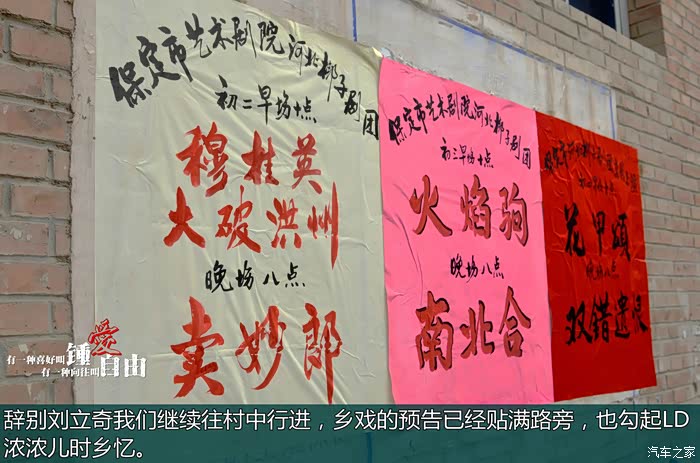 保定市艺术剧院河北梆子剧团
初二早场十点
穆桂英
大破洪州
晚场八点
卖妙郎
保定市艺术剧院河北梆子剧团
初三早场十点
火焰驹
晚场八点
南北合
花甲颂
晚场八点
双错遗恨
有一种喜好叫鍾愛
有一种向往叫自由
辞别刘立奇我们继续往村中行进，乡戏的预告已经贴满路旁，也勾起LD
浓浓儿时乡忆。
汽车之家